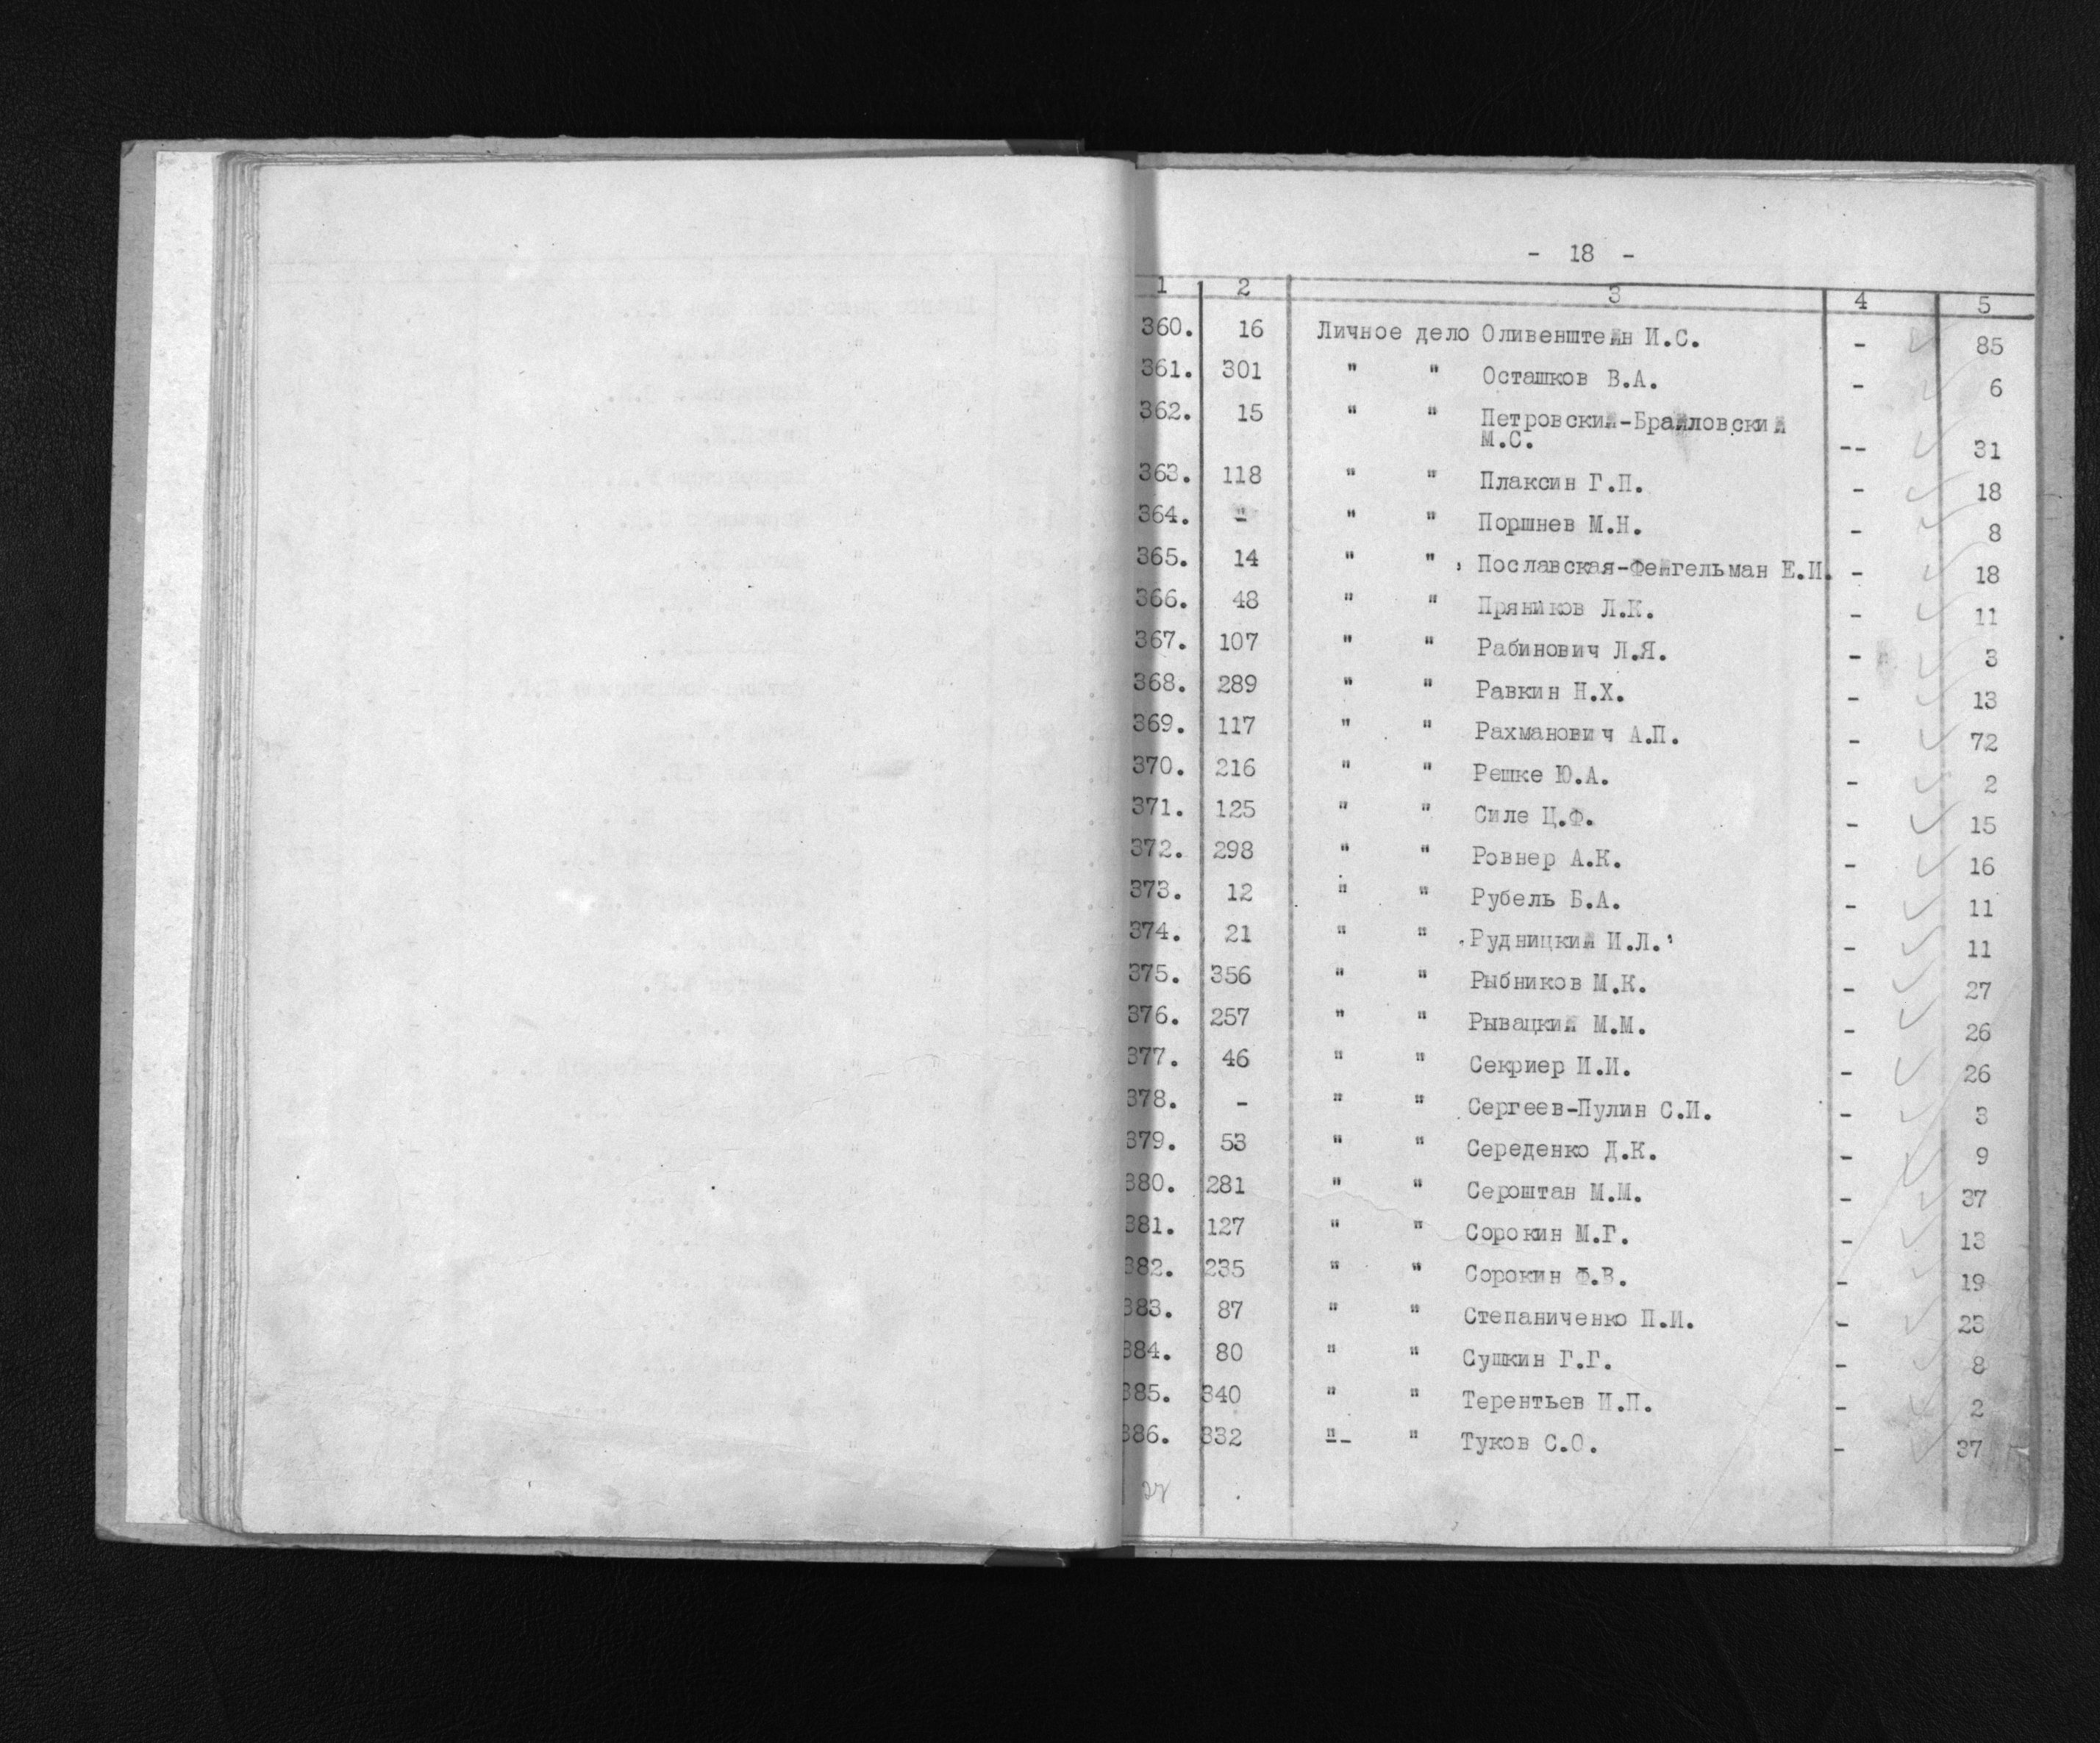 - 18 -
1 2 3 4 5
360. 16 Личное дело Оливенштейн И.С. - 85
361. 301 " " Осташков В.А. - 6
362. 15 " " Петровский-Браиловский
М.С. -- 31
363. 118 " " Плаксин Г.П. - 18
364. " " " Поршнев М.Н. - 8
365. 14 " " Пославская-Фейгельман Е.И. - 18
366. 48 " " Пряников Л.К. - 11
367. 107 " " Рабинович Л.Я. - 3
368. 289 " " Равкин Н.Х. - 13
369. 117 " " Рахманович А.П. - 72
370. 216 " " Решке Ю.А. - 2
371. 125 " " Силе Ц.Ф. - 15
372. 298 " " Ровнер А.К. - 16
373. 12 " " Рубель Б.А. - 11
374. 21 " " Рудницкий И.Л. - 11
375. 356 " " Рыбников М.К. - 27
376. 257 " " Рывацкий М.М. - 26
377. 46 " " Секриер И.И. - 26
378. - " " Сергеев-Пулин С.И. - 3
379. 53 " " Середенко Д.К. - 9
380. 281 " " Сероштан М.М. - 37
381. 127 " " Сорокин М.Г. - 13
382. 235 " " Сорокин Ф.В. - 19
383. 87 " " Степаниченко П.И. - 23
384. 80 " " Сушкин Г.Г. - 8
385. 340 " " Терентьев И.П. - 2
386. 332 "- " Туков С.О. - 37
27